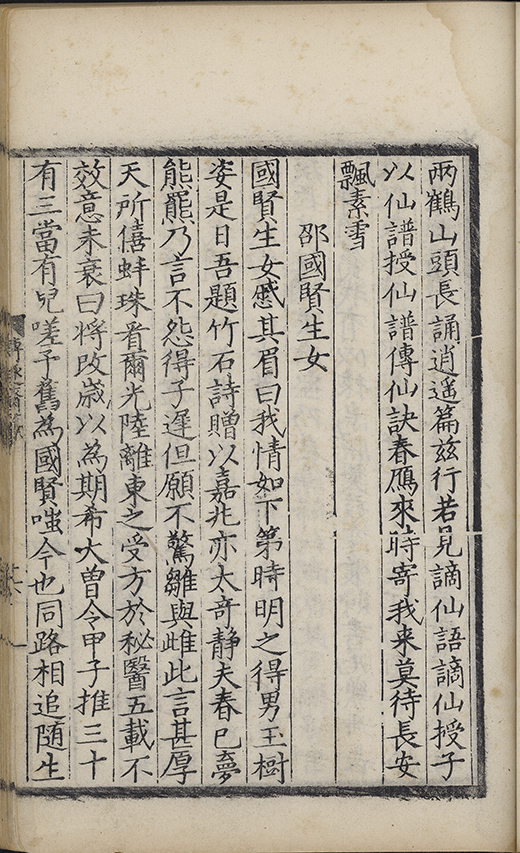 两鶴山頭長誦逍遥篇兹行若見謫仙語謫仙授子
以仙譜授仙譜傳仙訣春鴈來時寄我来莫待長安
飄素雪
邵國賢生女
國賢生女慼其眉曰我情如下第時明之得男玉樹
姿是日吾題竹石詩贈以嘉兆亦太奇静夫春已夢
熊羆乃言不怨得子遲但願不驚雛與雌此言甚厚
天所僖蚌珠看爾光陸離東之受方於秘醫五載不
效意未衰曰將改歲以為期希大曽令甲子推三十
有三當有兒嗟予舊為國賢嗤今也同路相追随生